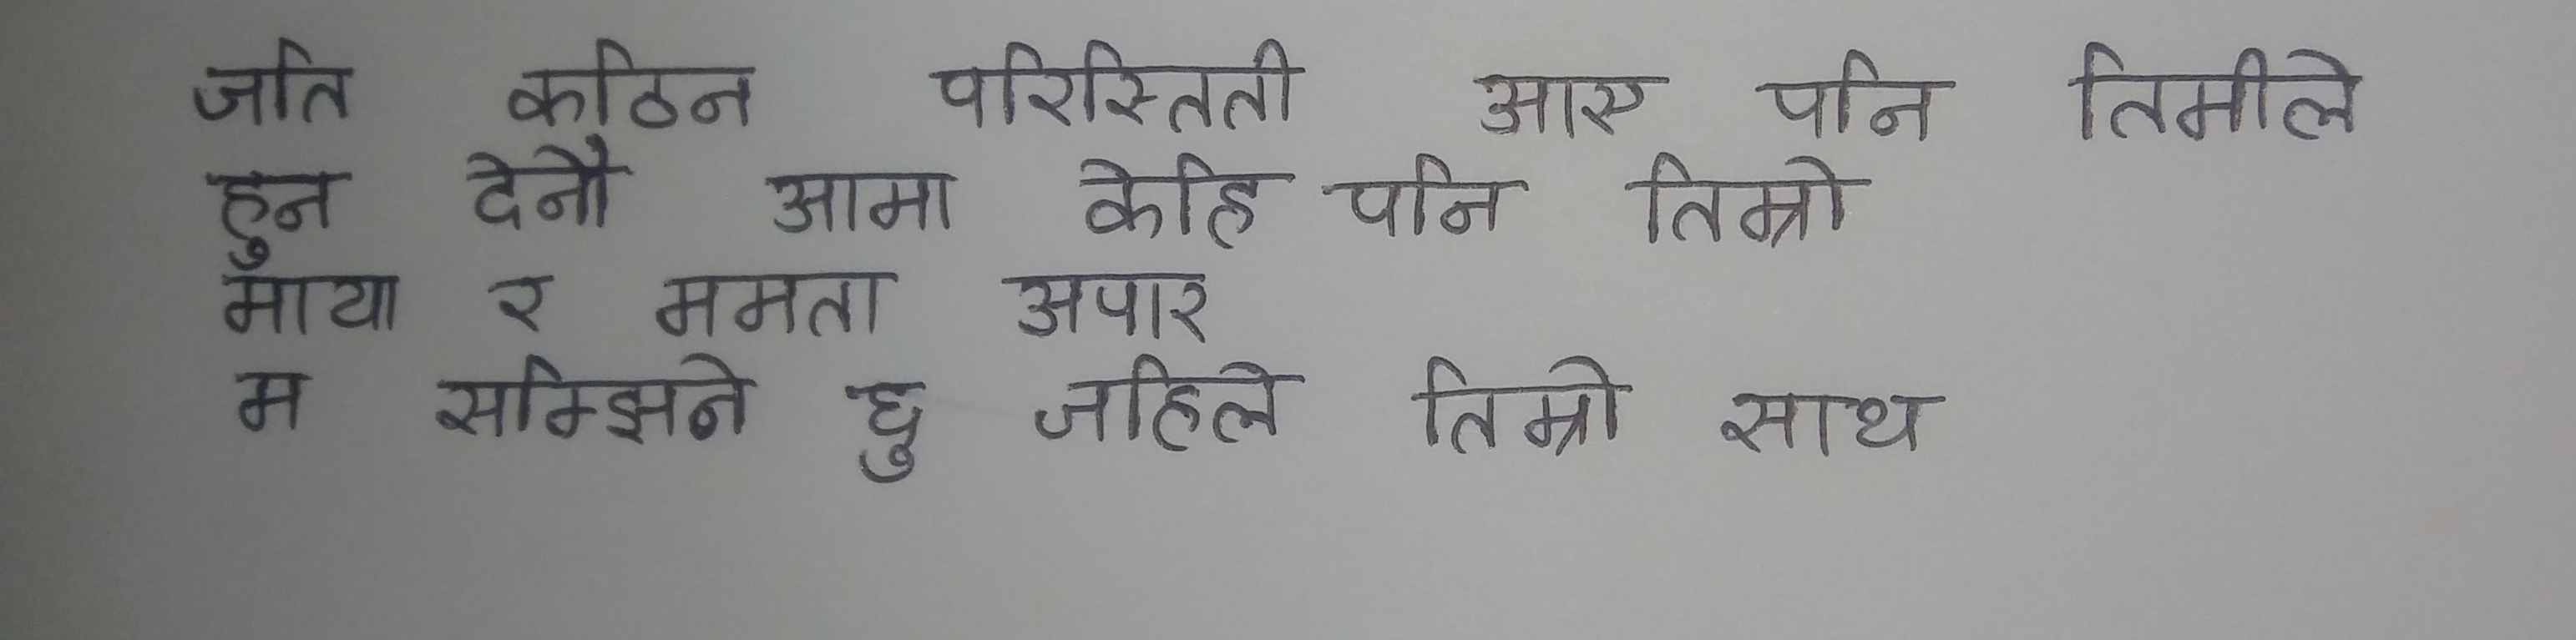 जति कठिन परिस्तिती आए पनि तिमीले
हुन देनौ आमा केहि पनि तिम्रो
माया र ममता अपार
म सम्झिने छु जहिले तिम्रो साथ